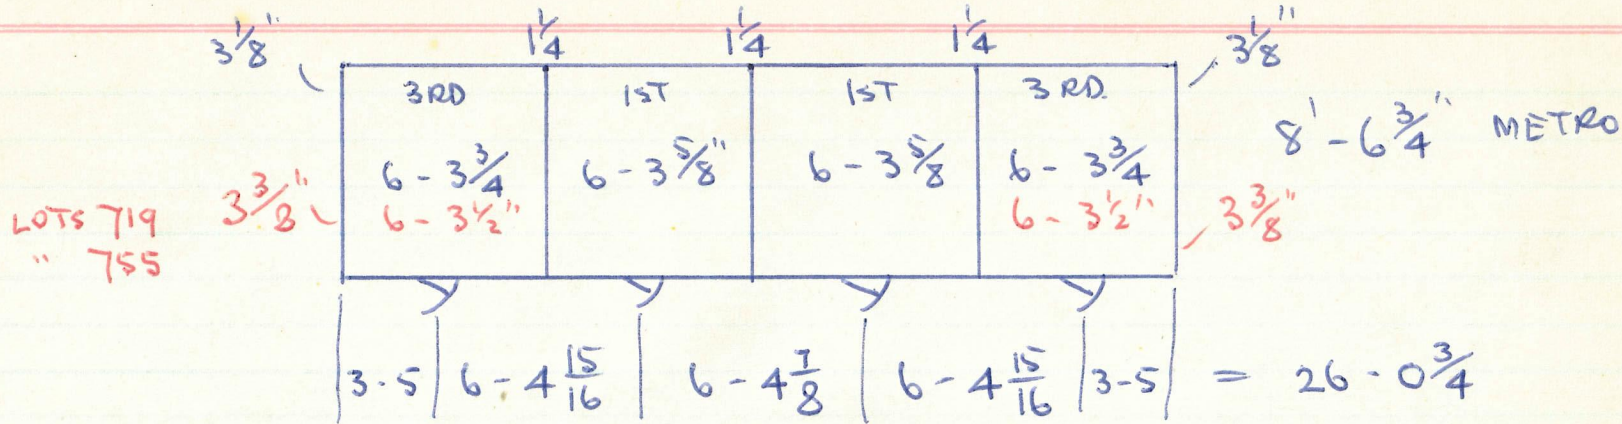 3 1/8" 1 1/4 1 1/4 1 1/4 3 1/8"
3RD 1ST 1ST 3RD.
8' - 6 3/4" METRO
6 - 3 3/4 6 - 3 5/8" 6 - 3 5/8 6 - 3 3/4
LOTS 719 3 3/8" 6 - 3 1/2" 6 - 3 1/2" 3 3/8"
" 755
3-5 6 - 4 15/16 6 - 4 7/8 6 - 4 15/16 3-5 = 26 - 0 3/4